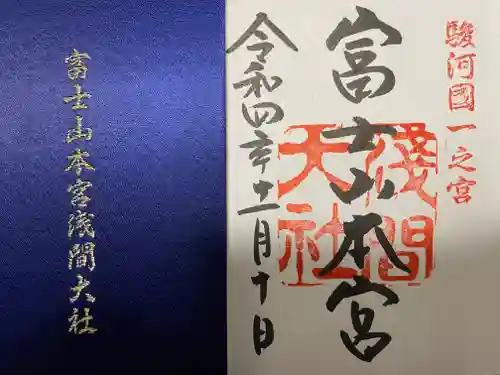 富士山本宮浅間大社
駿河國一之宮
富士山本宮
淺間
大社
令和四年十一月十日